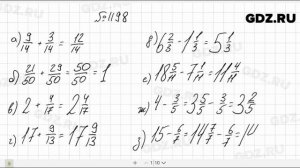 GDZ.RU
№1198
а) 9/14 + 3/14 = 12/14
б) 21/50 + 29/50 = 50/50 = 1
в) 2 + 4/17 = 2 4/17
г) 17 + 9/13 = 17 9/13
8) 6 2/3 - 1 1/3 = 5 1/3
е) 18 5/11 - 7 1/11 = 11 4/11
ж) 4 - 3/5 = 3 5/5 - 3/5 = 3 2/5
з) 15 - 6/7 = 14 7/7 - 6/7 = 14
GDZ.RU